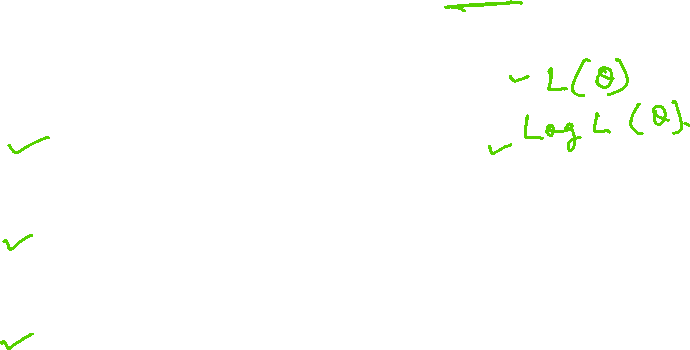 L(θ)
Log L (θ)